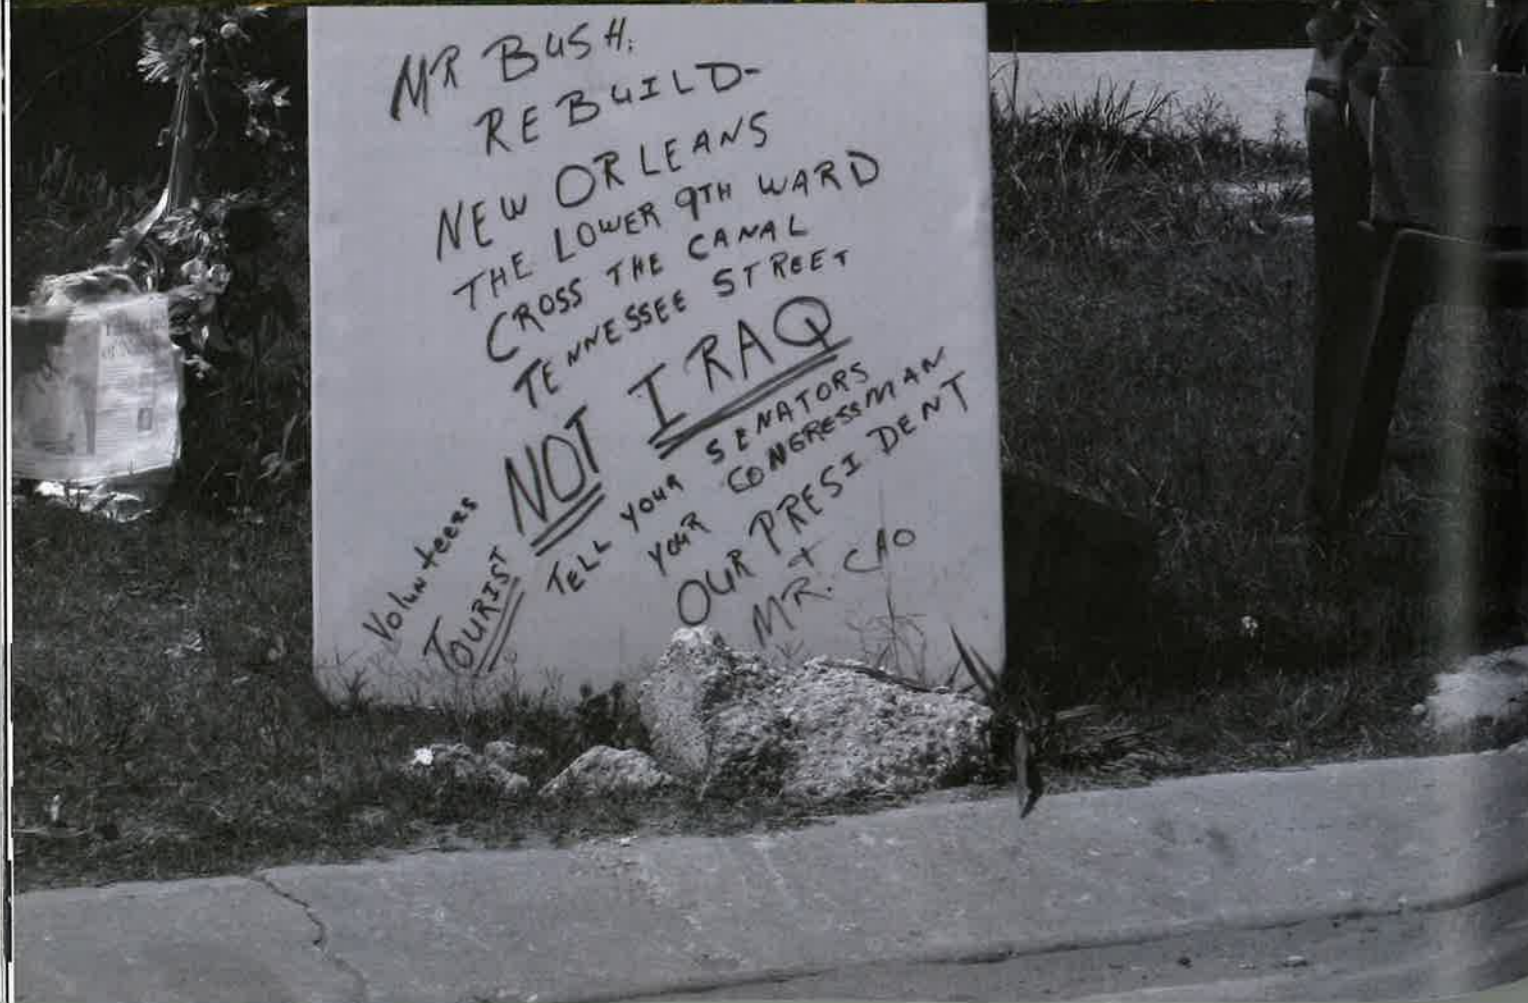 MR BUSH:
REBUILD-
NEW ORLEANS
THE LOWER 9TH WARD
CROSS THE CANAL
TENNESSEE STREET
NOT IRAQ
Volunteers
TOURIST
TELL YOUR SENATORS
YOUR CONGRESSMAN
OUR PRESIDENT
+
MR. CAO